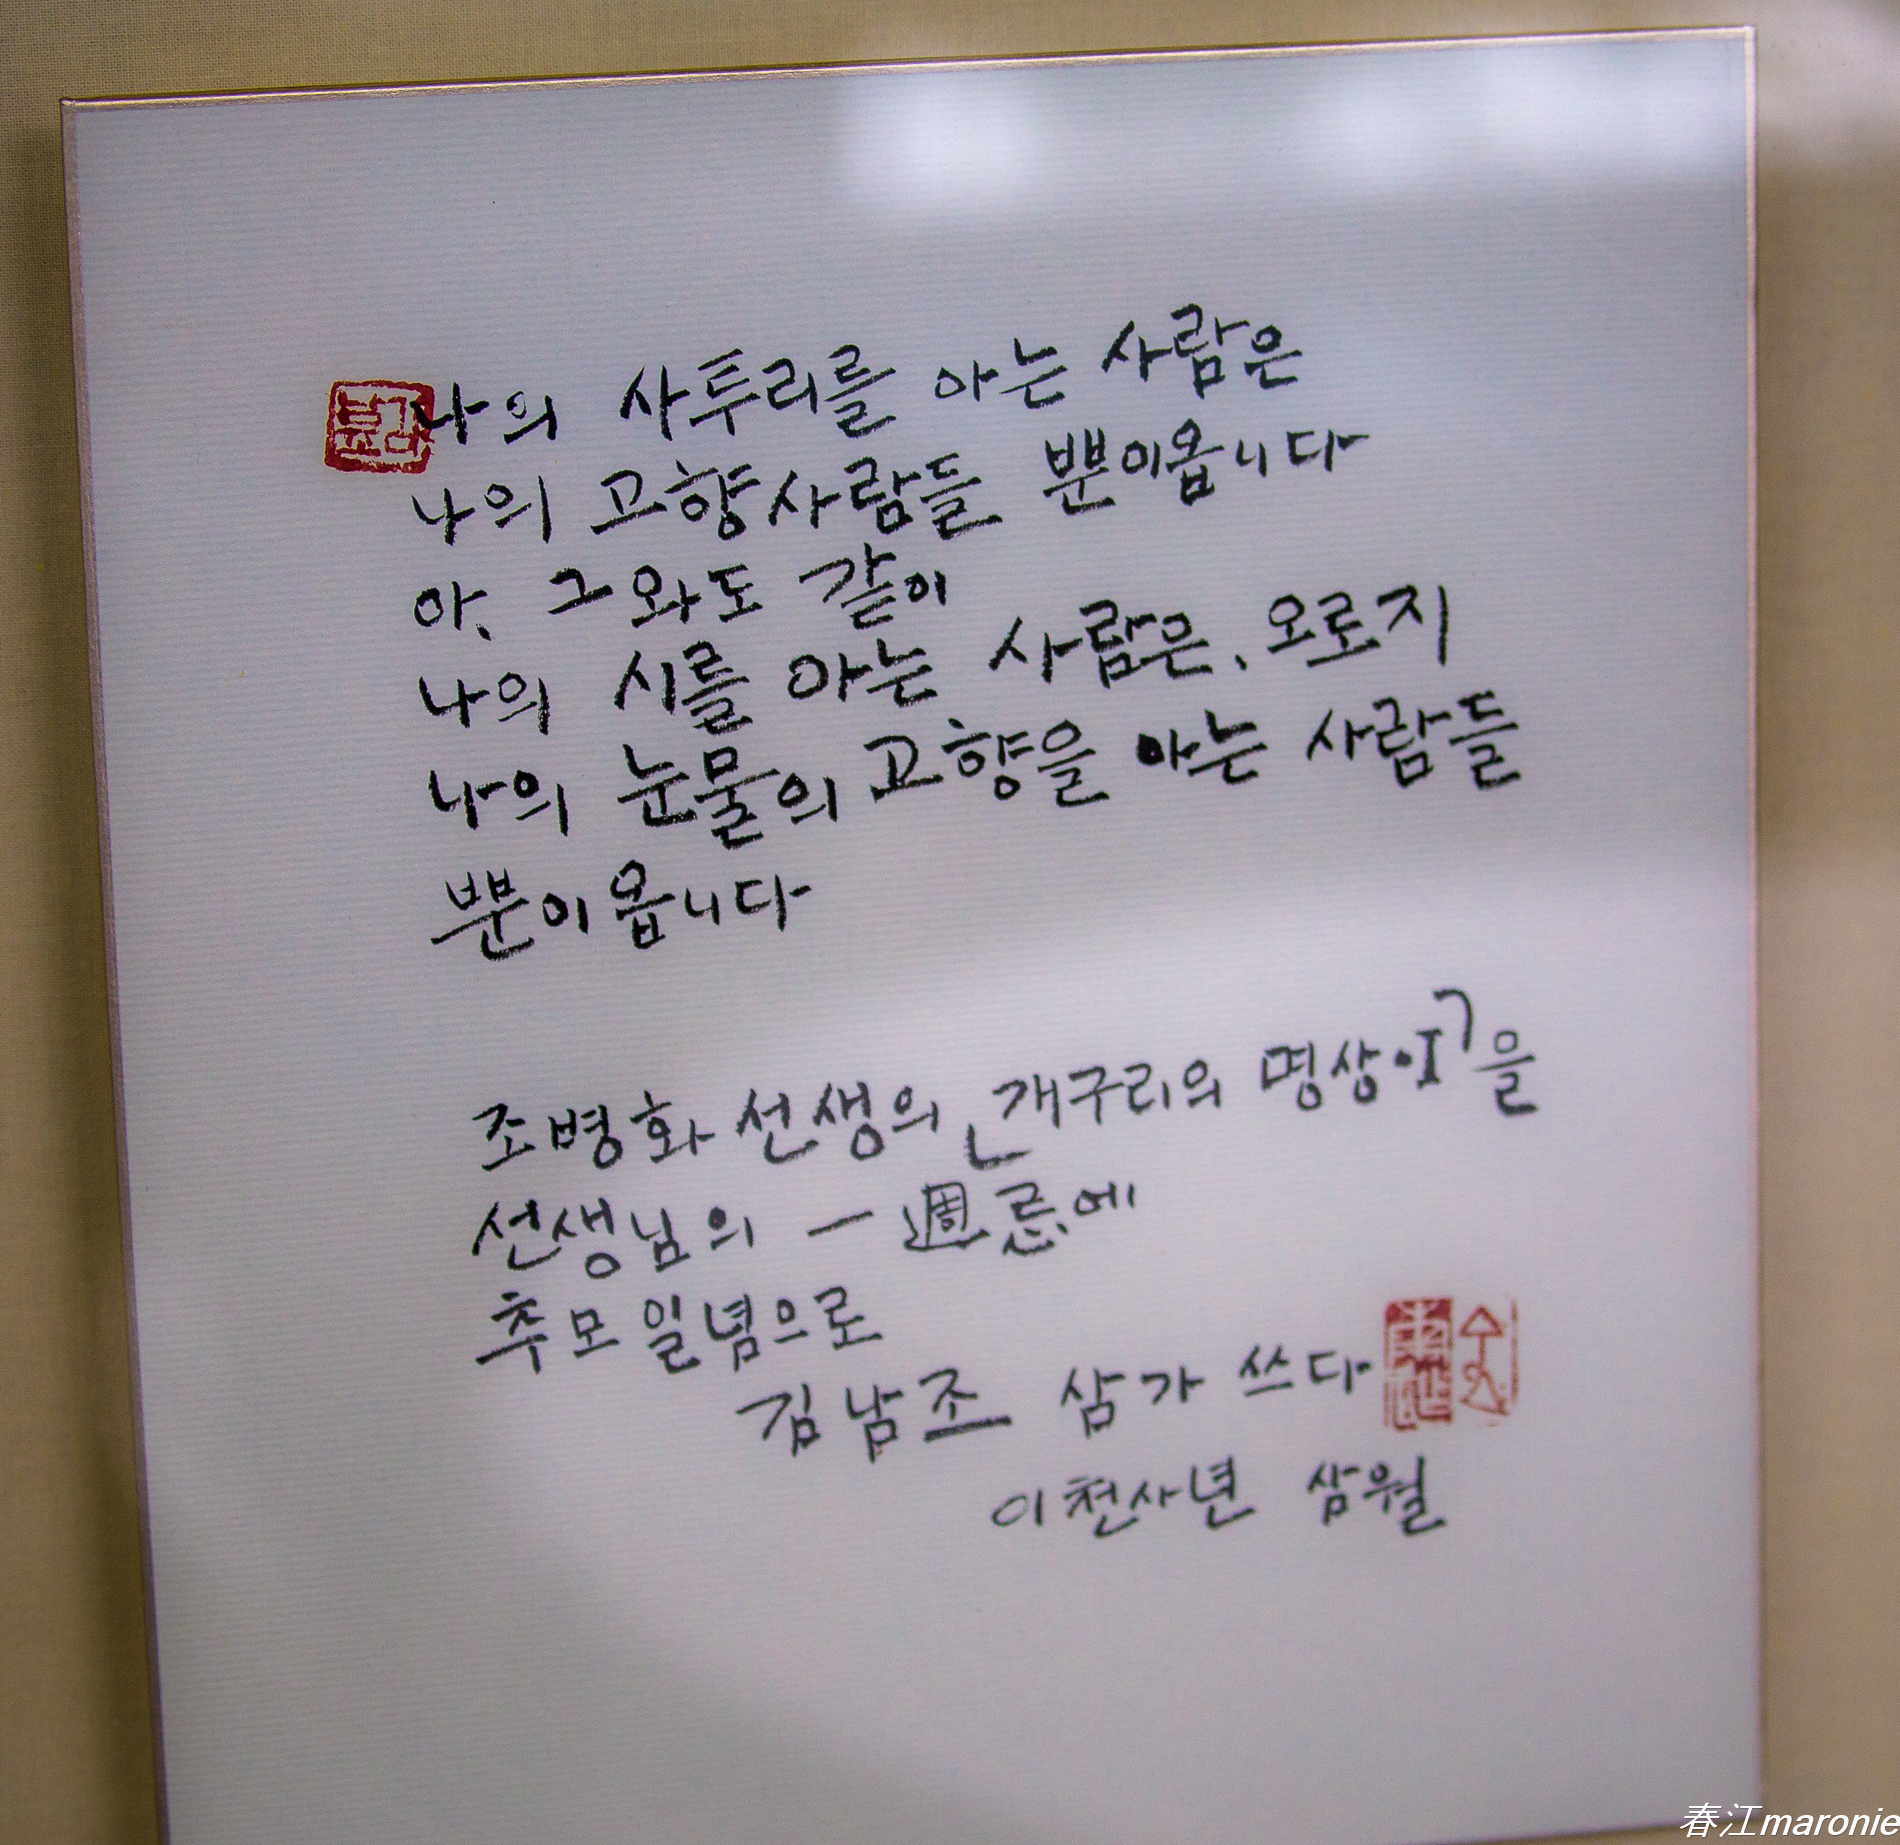 나의 사투리를 아는 사람은
나의 고향사람들 뿐이옵니다
아, 그와도 같이
나의 시를 아는 사람은, 오로지
나의 눈물의 고향을 아는 사람들
뿐이옵니다
조병화 선생의 「개구리의 명상·I」을
선생님의 一週忌에
추모일념으로
김남조 삼가 쓰다
이천사년 삼월
春江maronie